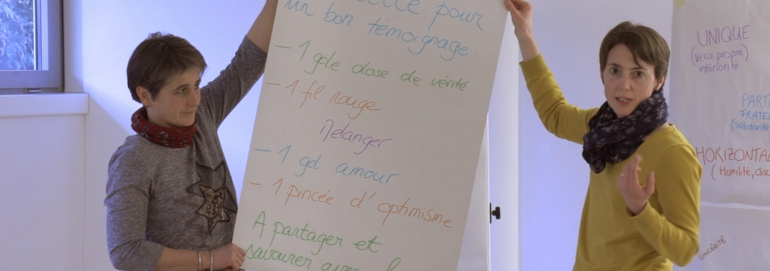 pour
un bon témoignage
- 1 gde dose de vérité
- 1 fil rouge
Mélanger
- 1 gd amour
- 1 pincée d'optimisme
A partager et
savourer
UNIQUE
(vécu propre)
intériorité
HORIZONTA
(Humilité,